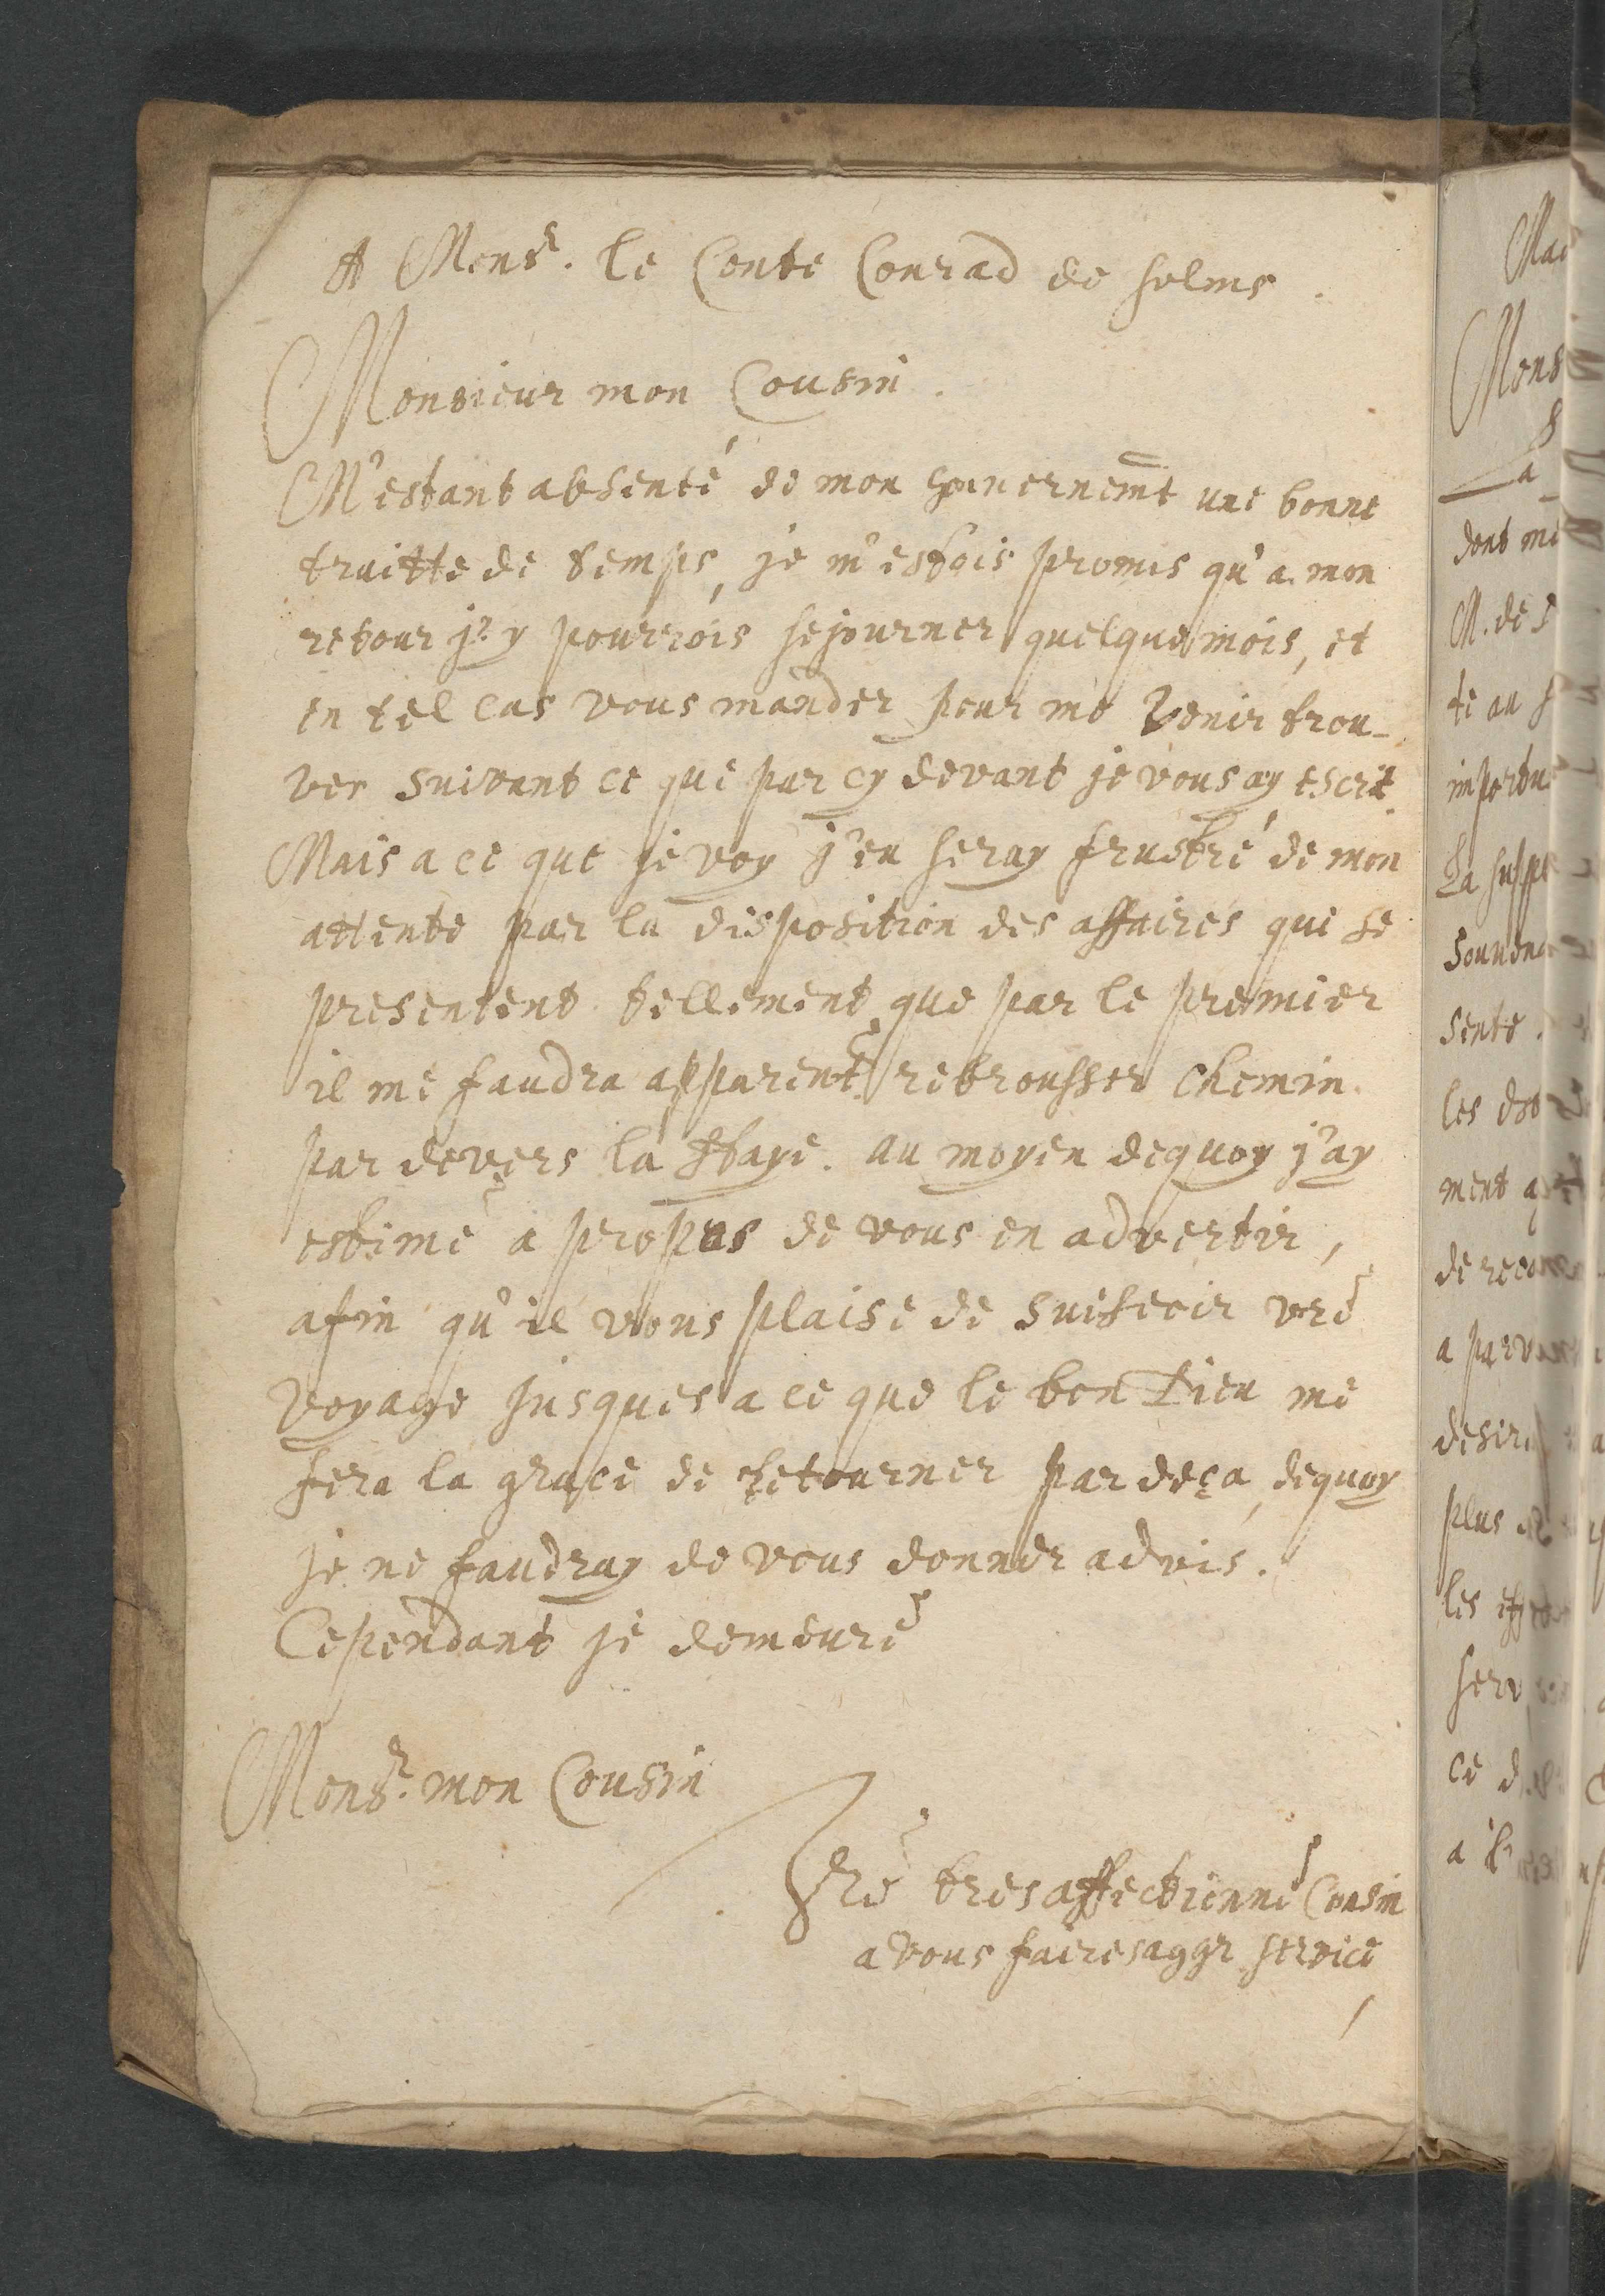 A Mons.r le Conte Conrad de solms.
Monsieur mon Cousin.
M'estant absenté de mon gouvernemt une bonne
traitte de temps, je m'estois promis qu'a mon
retour j'y pourrois sejourner quelque mois, et
en tel cas vous mander pour me venir trou-
ver suivant ce que par cy devant je vous ay escrit.
Mais a ce que je voy j'en seray frustré de mon
attente par la disposition des affaires qui se
presentent tellement que par le premier
il me faudra apparent. rebrousser chemin
par devers la Haye. au moyen dequoy j'ay
estimé a propos de vous en advertir,
afin qu'il vous plaise de surseoir vre
voyage jusques a ce que le bon Dieu me
fera la grace de retourner par deça, dequoy
je ne faudray de vous donner advis.
Cependant je demeure
Mons.r mon Cousin
Vre tresaffectionné Cousin
a vous faire service
Mons
dont
M. de
te au
sente
les
ment
de
a
plus
les
ce
a